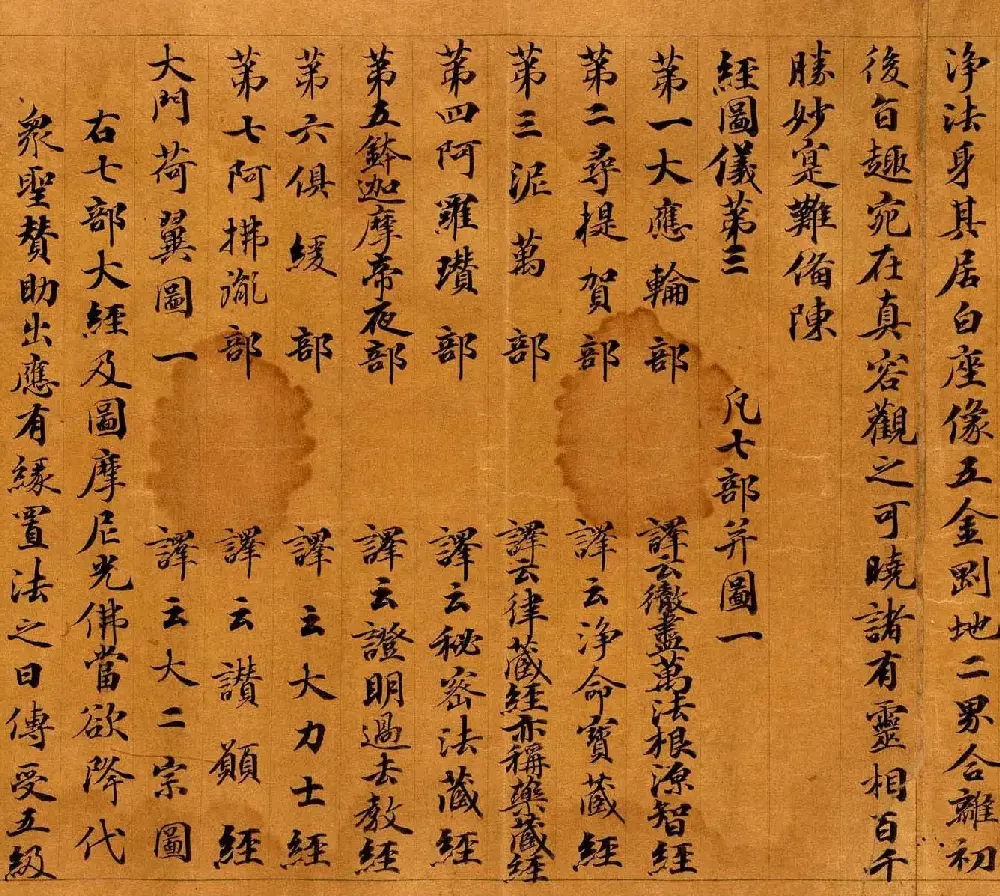 淨法身其居白座像五金剛地二界合離初
後旨趣宛在真容觀之可曉諸有靈相百千
勝妙寔難俻陳
經圖儀第三　凡七部并圖一
第一大應輪部　譯云徹盡萬法根源智經
第二尋提賀部　譯云淨命寶藏經
第三泥萬部　譯云律藏經亦稱藥藏經
第四阿羅瓚部　譯云秘密法藏經
第五鉢迦摩帝夜部　譯云證明過去教經
第六俱緩部　譯云大力士經
第七阿拂胤部　譯云讚願經
大門荷翼圖一　譯云大二宗圖
右七部大經及圖摩尼光佛當欲降代
衆聖贊助出應有緣置法之日傳受五級